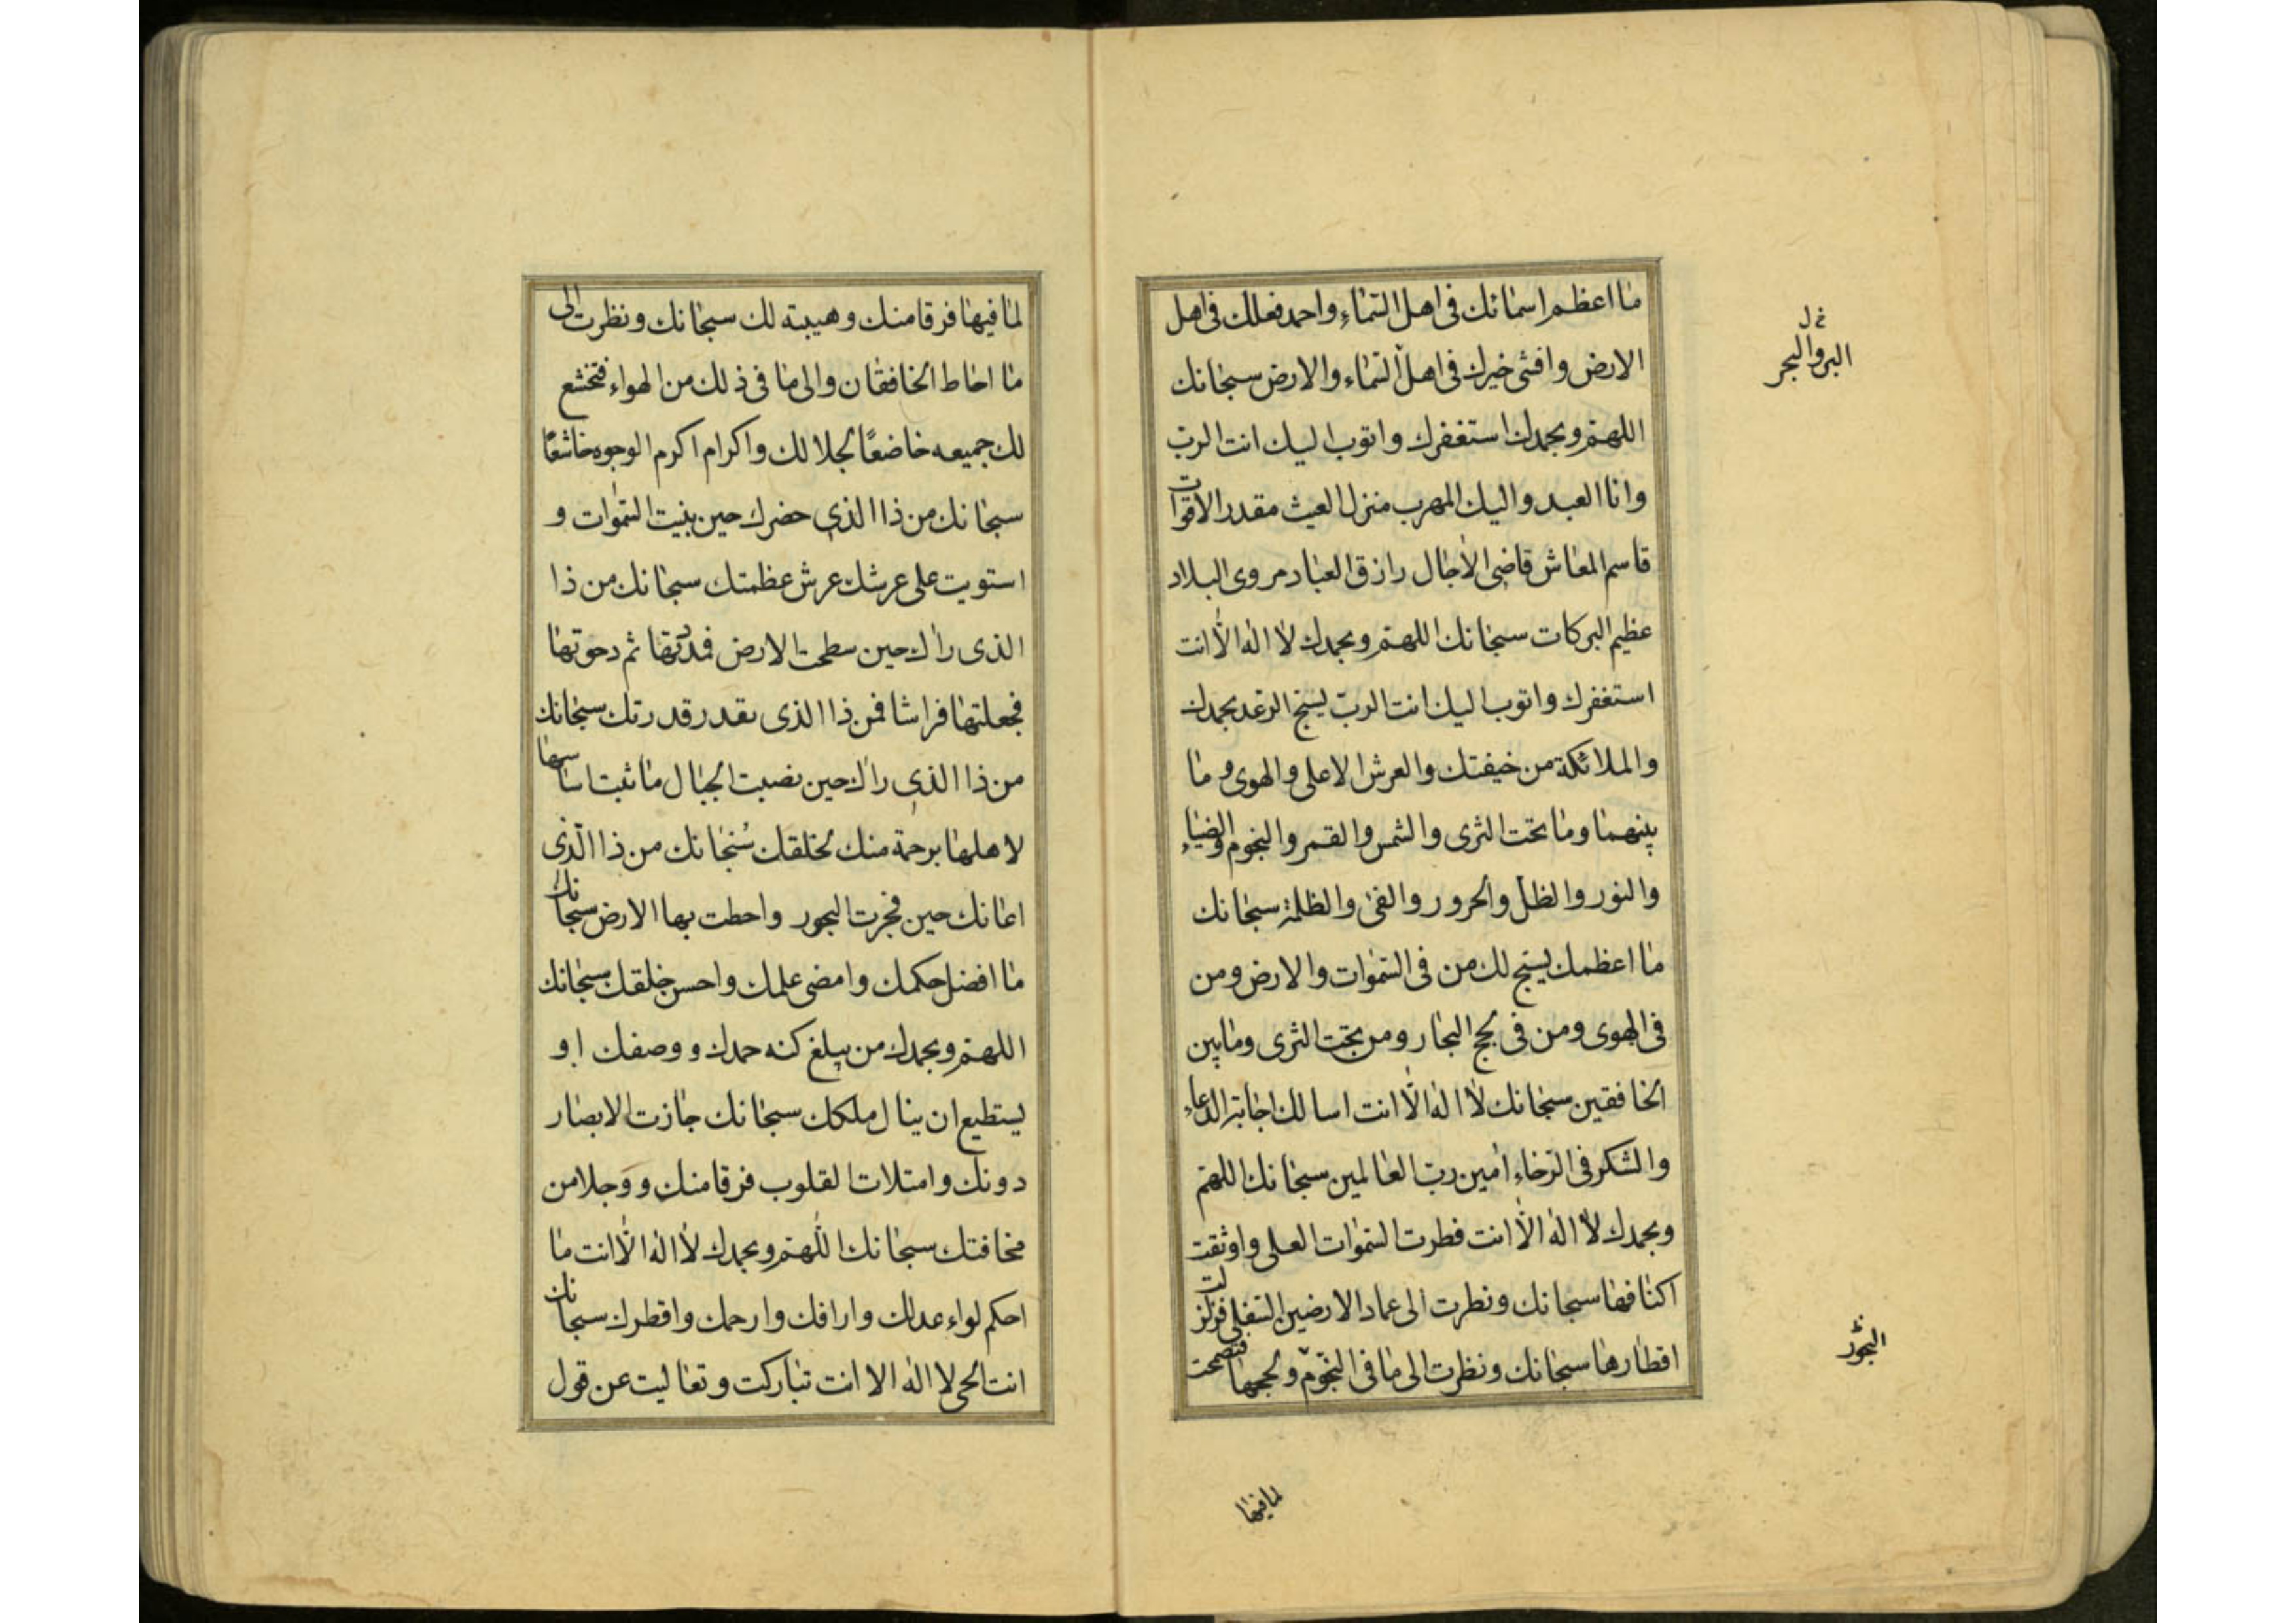 ما اعظم اسمائك فى اهل السماء واحمد فعلك فى اهل
الارض وافشى خيرك فى اهل السماء والارض سبحانك
اللهم وبحمدك استغفرك واتوب اليك انت الرب
وانا العبد واليك المهرب منزل الغيث مقدر الاقوات
قاسم المعاش قاضى الاجال رازق العباد مروى البلاد
عظيم البركات سبحانك اللهم وبحمدك لا اله الا انت
استغفرك واتوب اليك انت الرب يسبح الرعد بحمدك
والملائكة من خيفتك والعرش الاعلى والهوى وما
بينهما وما تحت الثرى والشمس والقمر والنجوم والضياء
والنور والظل والحرور والفئ والظلمة سبحانك
ما اعظمك يسبح لك من فى السموات والارض ومن
فى الهوى ومن فى لجج البحار ومن تحت الثرى وما بين
الخافقين سبحانك لا اله الا انت اسالك اجابة الدعاء
والشكر فى الرخاء امين رب العالمين سبحانك اللهم
وبحمدك لا اله الا انت فطرت السموات العلى واوثقت
اكنافها سبحانك ونظرت الى عماد الارضين السفلى فزلزلت
اقطارها سبحانك ونظرت الى ما فى النجوم ولججها فتصمحت
خ ل
البر والبحر
البحور
لما فيها
لما فيها فرقا منك وهيبة لك سبحانك ونظرت الى
ما احاط الخافقان والى ما فى ذلك من الهواء فتخشع
لك جميعه خاضعًا لجلالك واكرام اكرم الوجوه خاشعًا
سبحانك من ذا الذى حضرك حين بنيت السموات و
استويت على عرشك عرش عظمتك سبحانك من ذا
الذى راك حين سطحت الارض فمددتها ثم دحوتها
فجعلتها فراشا فمن ذا الذى يقدر قدرتك سبحانك
من ذا الذى راك حين نصبت الجبال ما ثبت اساسها
لاهلها برحمة منك لخلقك سُبْحانك من ذا الّذى
اعانك حين فجرت البحور واحطت بها الارض سبحانك
ما افضل حكمك وامضى علمك واحسن خلقك سبحانك
اللهم وبحمدك من يبلغ كنه حمدك ووصفك او
يستطيع ان ينال ملكك سبحانك جازت الابصار
دونك وامتلات القلوب فرقا منك ووجلا من
مخافتك سبحانك اللهم وبحمدك لا اله الا انت ما
احكم لواء عدلك وارافك وارحمك واقطرك سبحانك
انت الحى لا اله الا انت تباركت وتعاليت عن قول